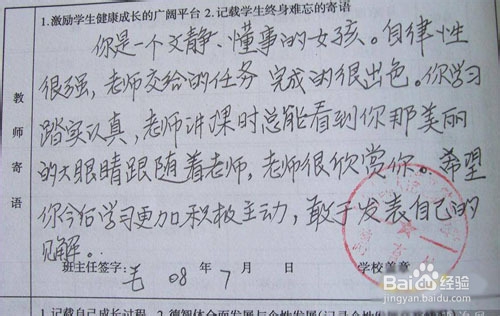 1.激励学生健康成长的广阔平台 2.记载学生终身难忘的寄语
教师寄语
你是一个文静、懂事的女孩。自律性
很强，老师交给的任务完成的很出色。你学习
踏实认真，老师讲课时总能看到你那美丽
的大眼睛跟随着老师，老师很欣赏你。希望
你今后学习更加积极主动，敢于发表自己的
见解。
班主任签字：毛 08 年 7 月 日 学校盖章
Baidu 经验
jingyan.baidu.com
1.记载自己成长过程 2.德智体全面发展与个性发展(记录个性